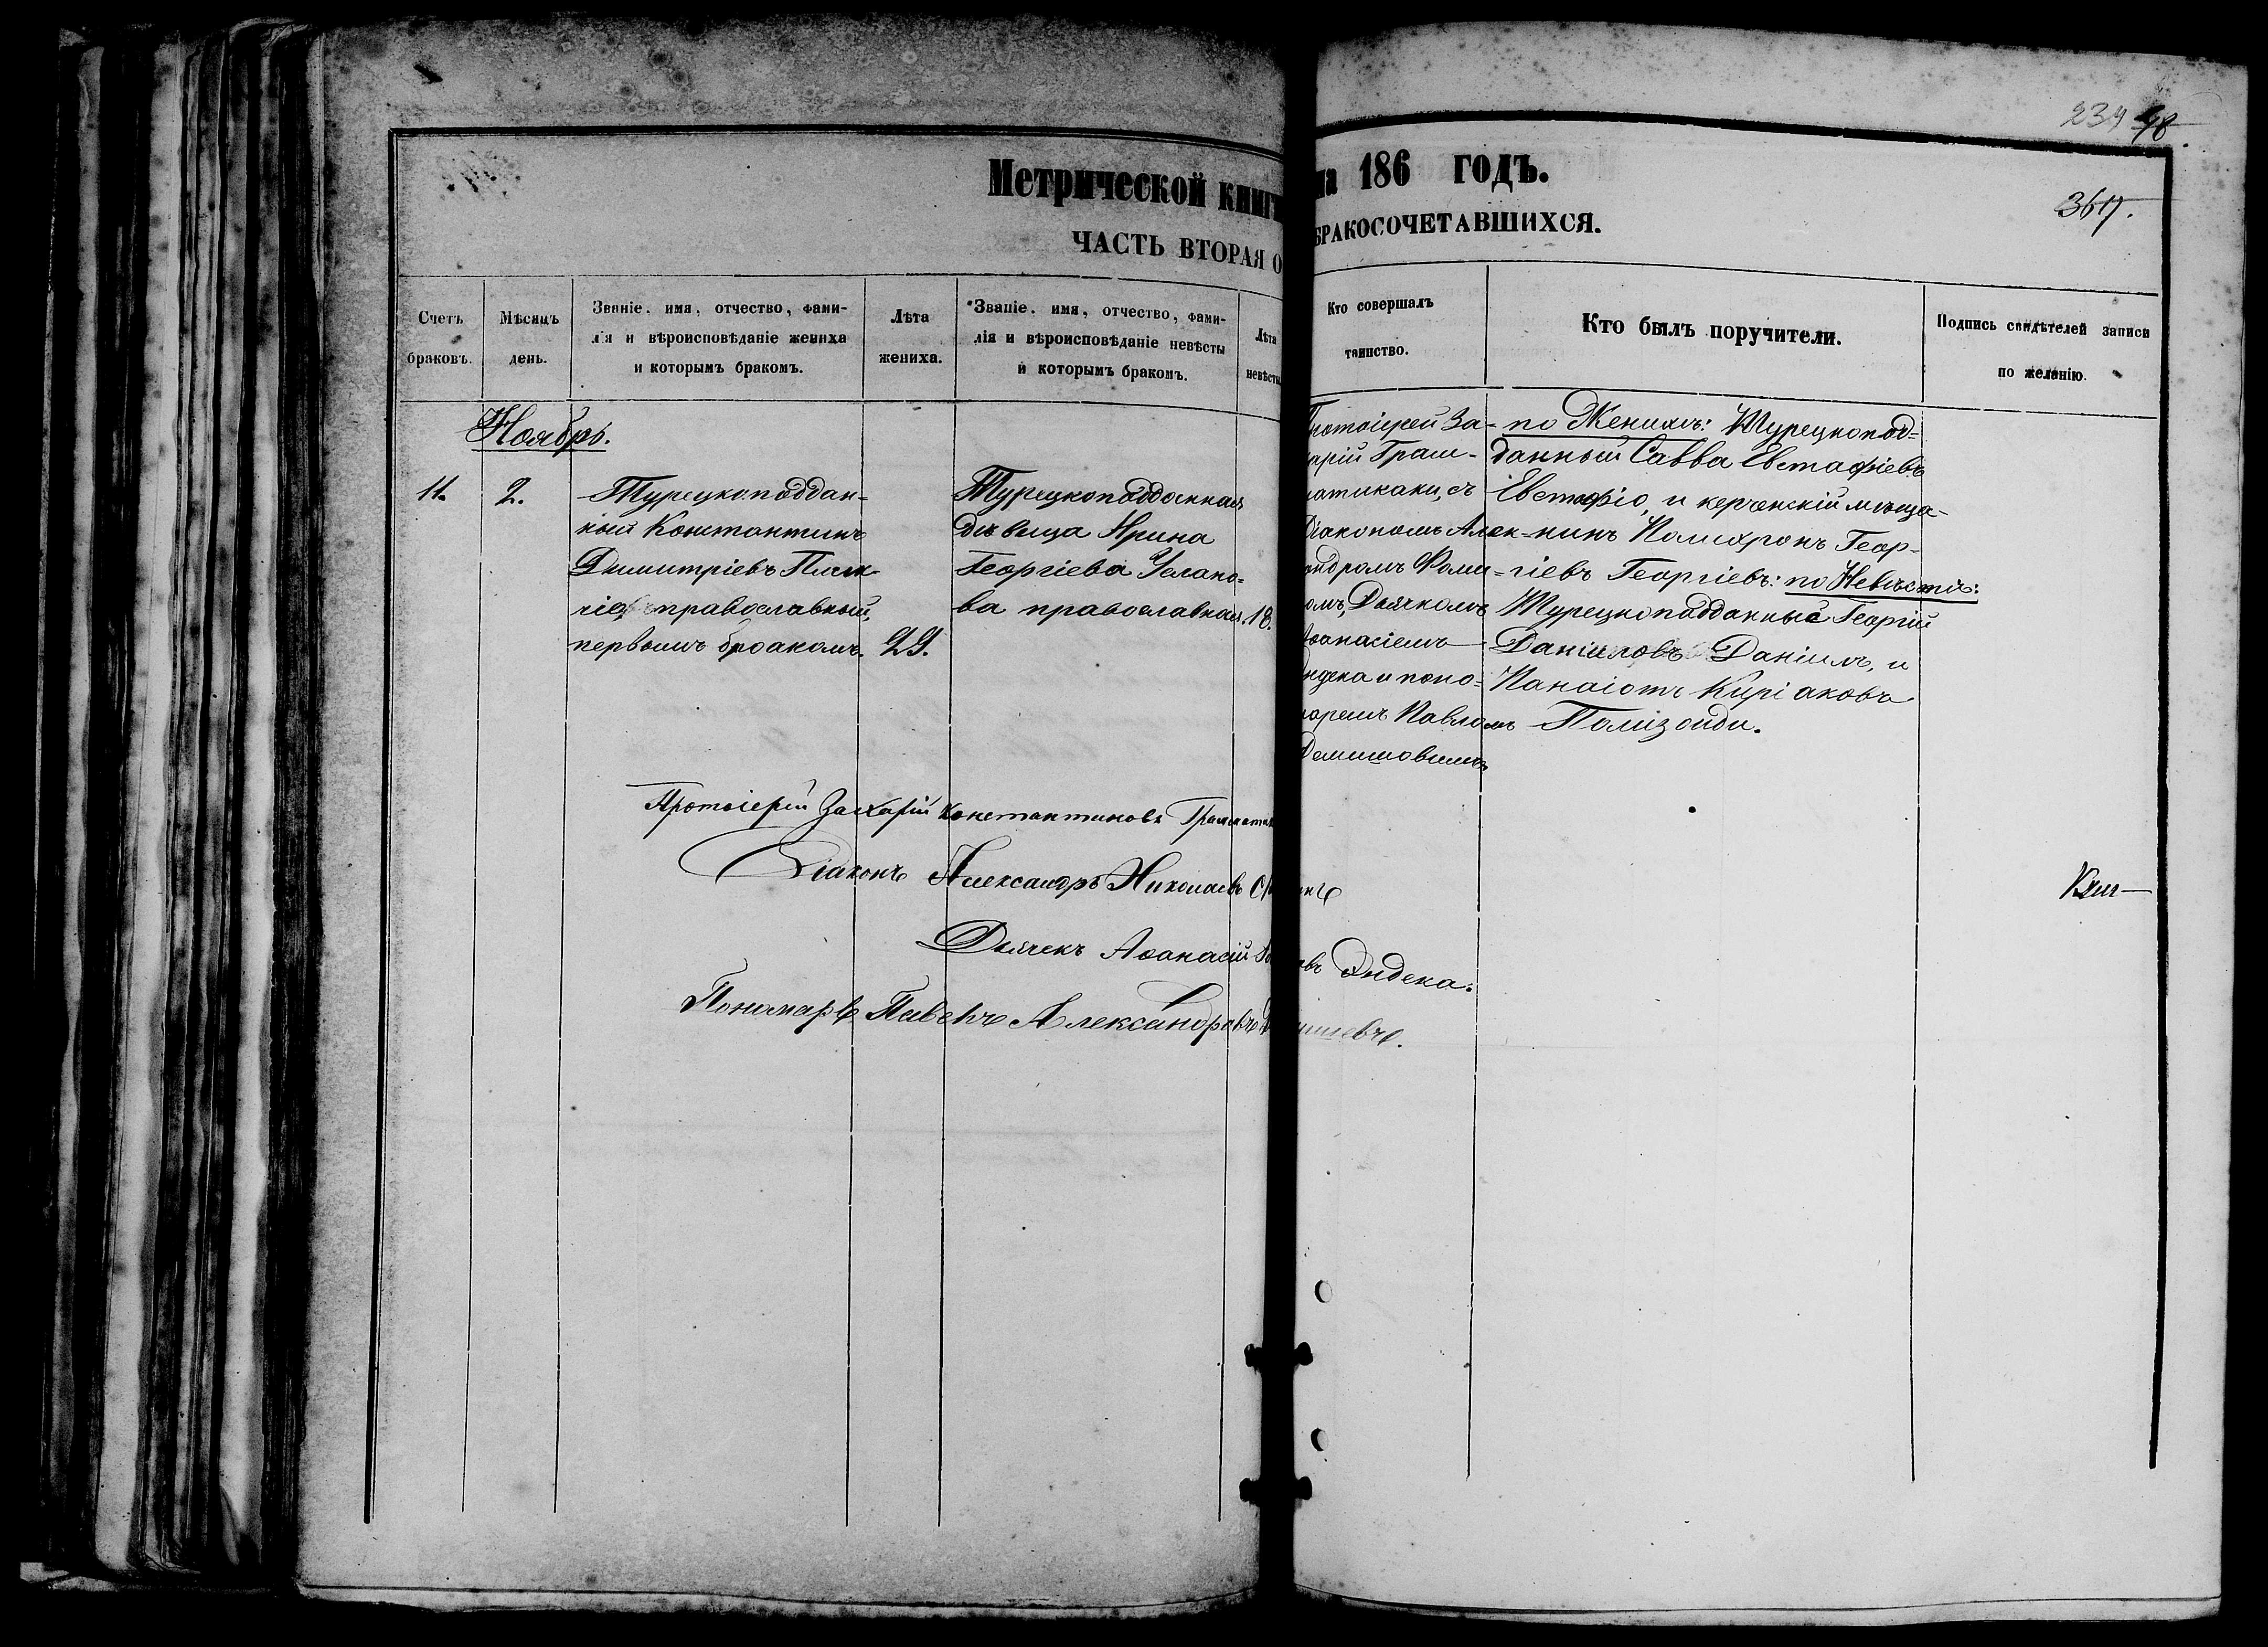 234 48
Метрической книг на 186 годъ.
3617.
ЧАСТЬ ВТОРАЯ О БРАКОСОЧЕТАВШИХСЯ.
Счетъ браковъ.
Мѣсяцъ день.
Званіе, имя, отчество, фами-
лія и вѣроисповѣданіе жениха
и которымъ бракомъ.
Лѣта
жениха.
Званіе, имя, отчество, фами-
лія и вѣроисповѣданіе невѣсты
и которымъ бракомъ.
Лѣта
невѣсты
Кто совершалъ
таинство.
Кто былъ поручители.
Подпись свидѣтелей записи
по желанію.
Ноябрь.
11.
2.
Турецкоподдан-
ный Константинъ
Димитріевъ
православный,
первымъ бракомъ.
29.
Турецкоподданная
дѣвица Ирина
Георгіева Услано-
ва православная.
18.
Протоіерей За-
харій Грам-
матикаки, съ
Діакономъ Алек-
андромъ Фоми-
омъ, Дьячкомъ
Аѳанасіемъ
Яндека и поно-
маремъ Павломъ
Демишовымъ
по Женихѣ: Турецкопод-
данный Савва Евстафіевъ
Евстафіо, и керченскій мѣща-
нинъ Полихронъ Геор-
гіевъ Георгіевъ: по Невѣстѣ:
Турецкоподданные Георгій
Даніиловъ Даніилъ, и
Панаіотъ Киріаковъ
Полізоиди.
Протоіерей Захарій Константиновъ Грамматик
Діаконъ Александръ Николаевъ
Дьячекъ Аѳанасій Яндека.
Пономарь Павелъ Александровъ